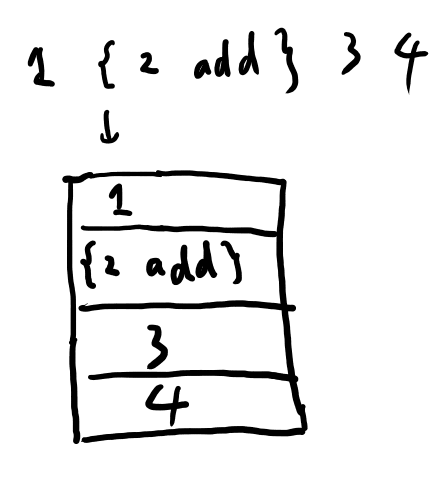 1 { 2 add } 3 4
1
{2 add}
3
4